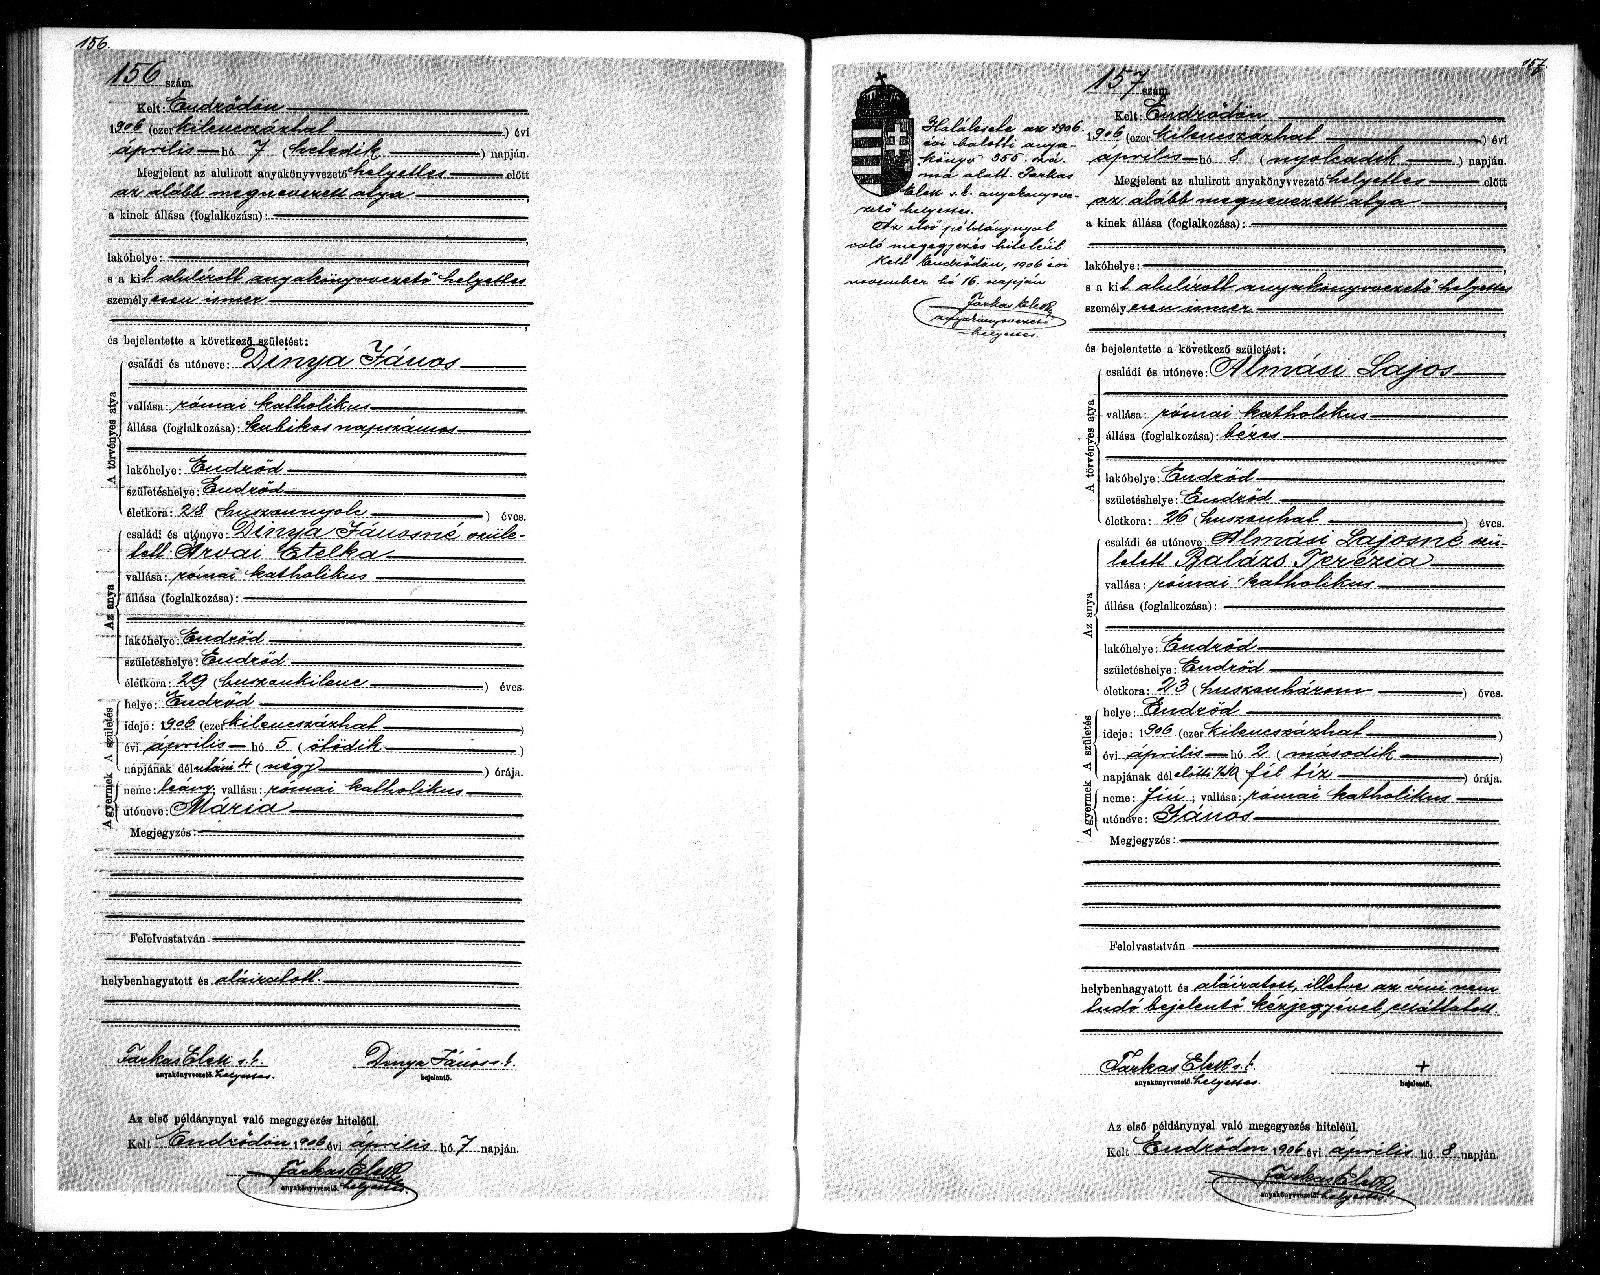 156.
156 szám.
Kelt: Endrődön
1906 (ezer kilencszázhat ) évi
április hó 7 ( hetedik ) napján.
Megjelent az alulirott anyakönyvvezető helyettes előtt
az alább megnevezett atya
a kinek állása (foglalkozása):
lakóhelye:
s a kit alulírott anyakönyvvezető helyettes
személyesen ismer
és bejelentette a következő születést:
A törvényes atya
családi és utóneve: Dinya János
vallása: római katholikus
állása (foglalkozása): kubikos napszámos
lakóhelye: Endrőd
születéshelye: Endrőd
életkora: 28 (huszonnyolc ) éves.
Az anya
családi és utóneve: Dinya Jánosné szüle-
tett Arvai Etelka
vallása: római katholikus
állása (foglalkozása):
lakóhelye: Endrőd
születéshelye: Endrőd
életkora: 29 (huszonkilenc ) éves.
A születés
helye: Endrőd
ideje: 1906 (ezer kilencszázhat )
évi április hó 5 ( ötödik )
napjának délutáni 4 ( négy ) órája.
A gyermek
neme: leány; vallása: római katholikus
utóneve: Mária
Megjegyzés:
Felolvastatván
helybenhagyatott és aláiratott.
Farkas Elek s.k. Dinya János s.k.
anyakönyvvezető. helyettes. bejelentő.
Az első példánynyal való megegyezés hiteléül.
Kelt Endrődön 1906 évi április hó 7 napján.
Farkas Elek
anyakönyvvezető. helyettes.
157.
Halálesete az 1906.
évi halotti anya-
könyv 355 szá-
ma alatt. Farkas
Elek s.k. anyakönyvve-
zető helyettes.
Az első példánynyal
való megegyezés hiteléül
Kelt Endrődön, 1906 évi
november hó 16. napján
Farkas Elek
anyakönyvvezető
helyettes.
157 szám.
Kelt: Endrődön
1906 (ezer kilencszázhat ) évi
április hó 8 ( nyolcadik ) napján.
Megjelent az alulirott anyakönyvvezető helyettes előtt
az alább megnevezett atya
a kinek állása (foglalkozása):
lakóhelye:
s a kit alulírott anyakönyvvezető helyettes
személyesen ismer
és bejelentette a következő születést:
A törvényes atya
családi és utóneve: Almási Lajos
vallása: római katholikus
állása (foglalkozása): béres
lakóhelye: Endrőd
születéshelye: Endrőd
életkora: 26 (huszonhat ) éves.
Az anya
családi és utóneve: Almási Lajosné szü-
letett Balázs Terézia
vallása: római katholikus
állása (foglalkozása):
lakóhelye: Endrőd
születéshelye: Endrőd
életkora: 23 (huszonhárom ) éves.
A születés
helye: Endrőd
ideje: 1906 (ezer kilencszázhat )
évi április hó 2 ( második )
napjának délelőtti fél tíz ) órája.
A gyermek
neme: fiú; vallása: római katholikus
utóneve: János
Megjegyzés:
Felolvastatván
helybenhagyatott és aláiratott, illetve az írni nem
tudó bejelentő kézjegyével elláttatott
Farkas Elek s.k. +
anyakönyvvezető. helyettes. bejelentő.
Az első példánynyal való megegyezés hiteléül.
Kelt Endrődön 1906 évi április hó 8 napján.
Farkas Elek
anyakönyvvezető. helyettes.